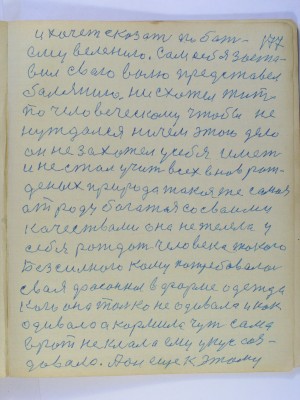 и хочет сказат по бат- 177
ему велению. Сам себя заста-
вил свою волю представел
болянию, ни схотел жит
по человеческому чтобы не
нуждался ничем этого дело
он не захотел у себя имет
и не стал учит всех вновь рож-
деных природа такая же самая
от роду богатая со своими
качествами она не жгела у
себя рождат человека такого
безсилного кому потребовалос
свая фасонная в форме одежда
кого она толко не одивала и как
одивала а кормила чут сама
в рот не клала ему укус соз-
довало. А он еще к этому